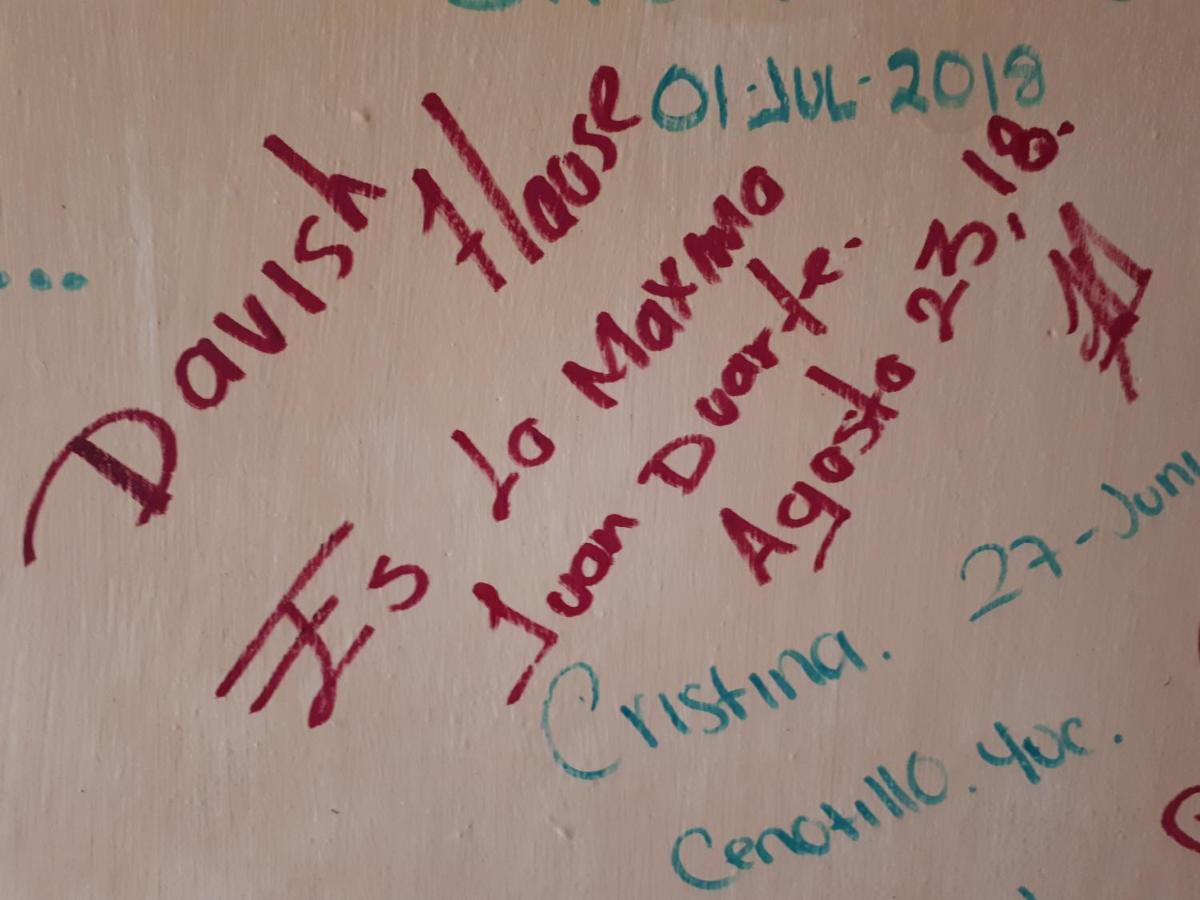 01-JUL-2018
Davish Hause
Es Lo Maxmo
Juan Duarte.
Agosto 23, 18.
27-Juni
Cristina.
Cenotillo. Yuc.